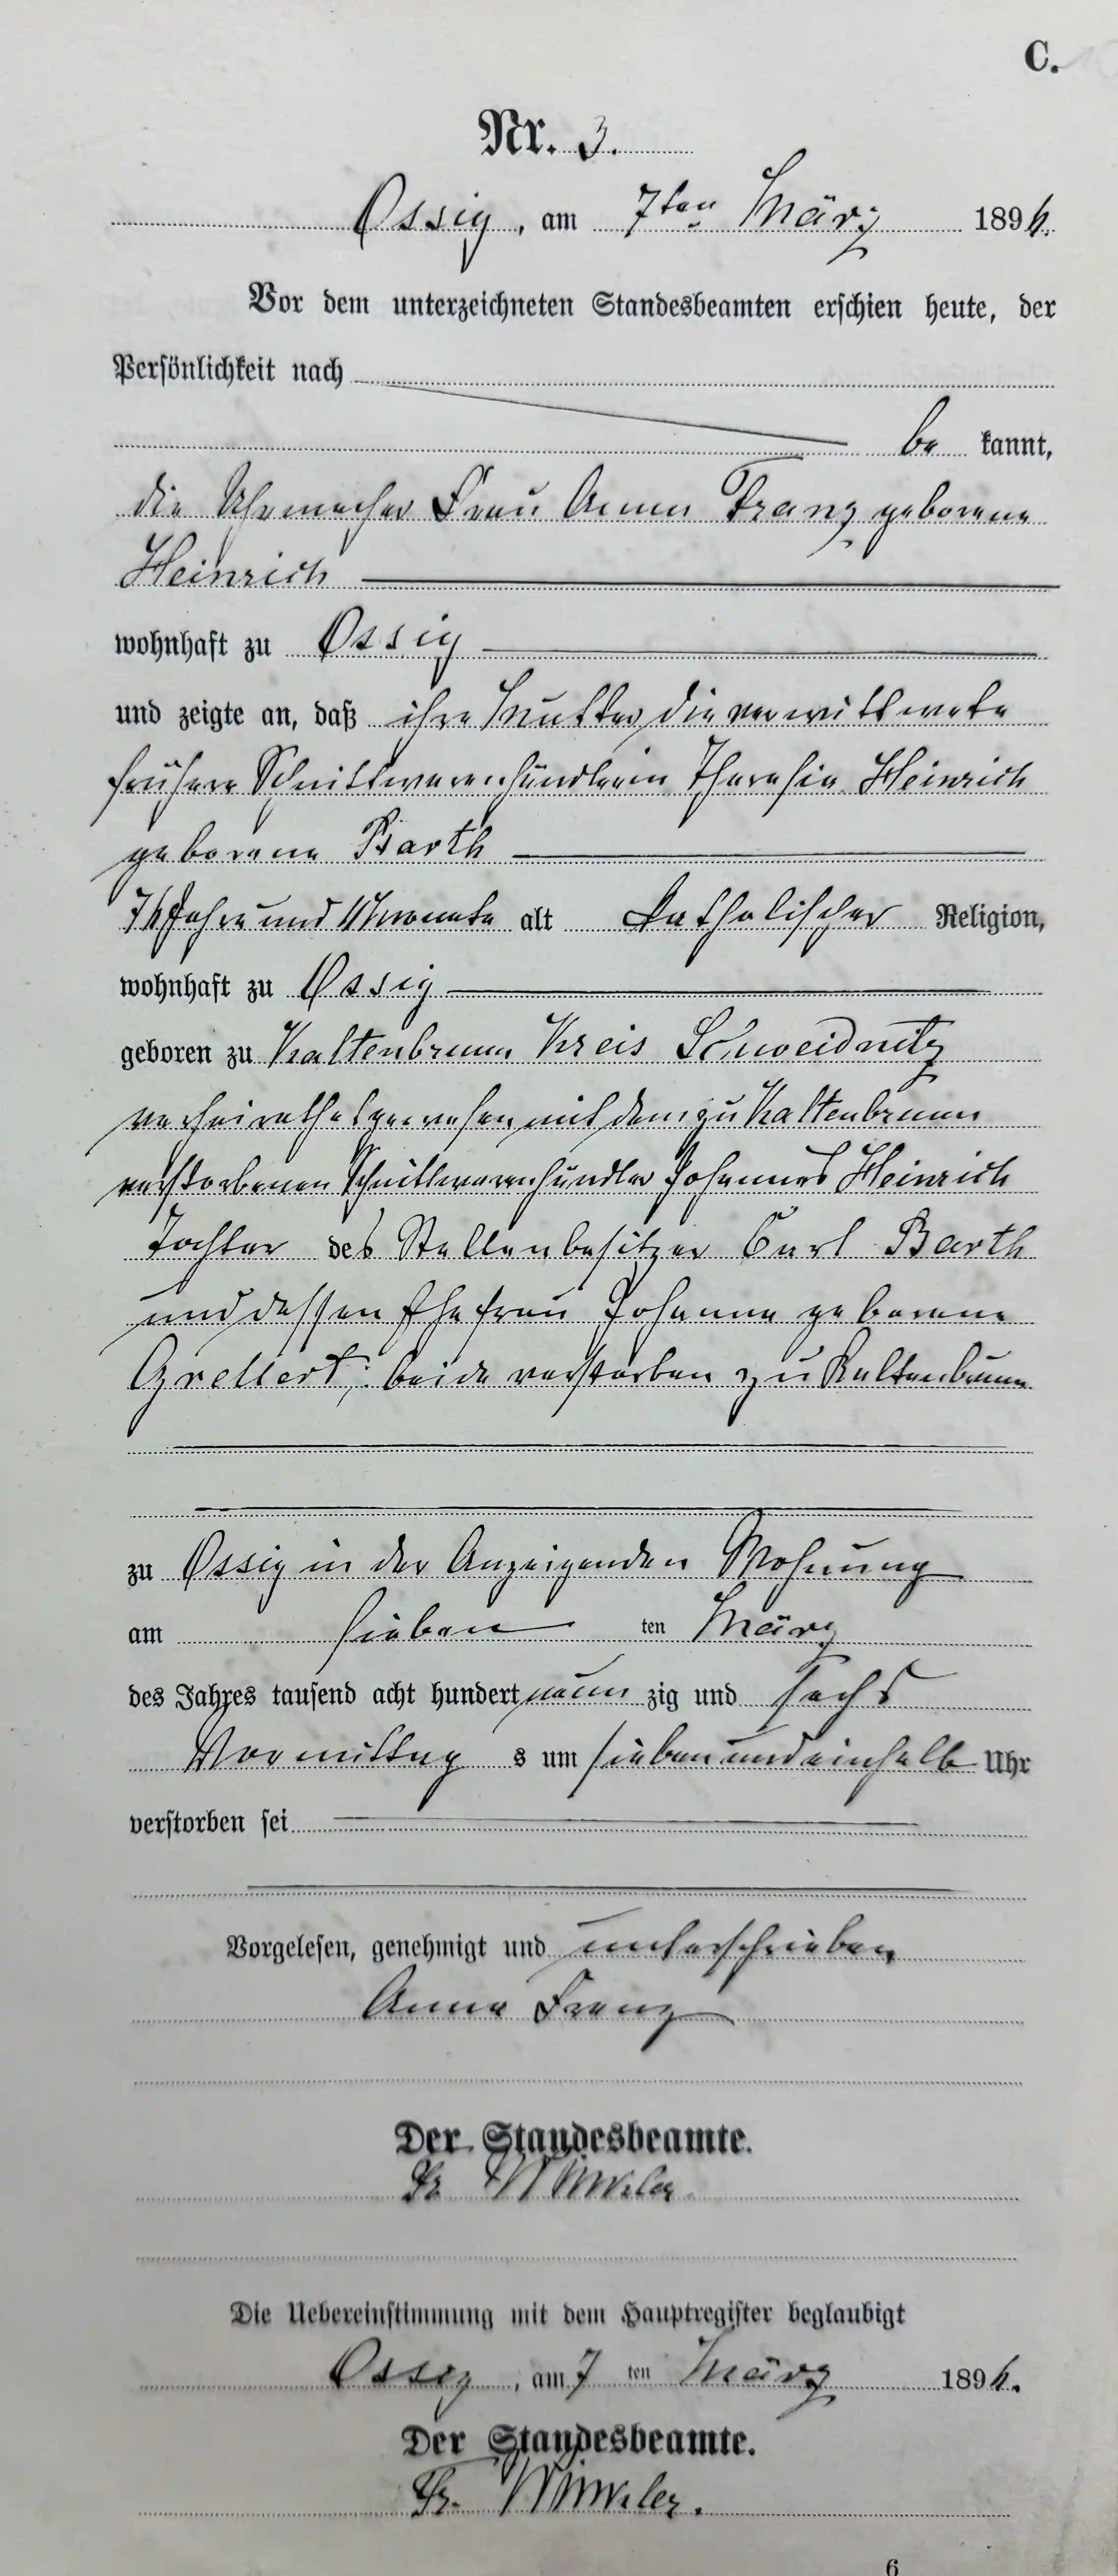 C.
Nr. 3.
Ossig, am 7ten März 1896.
Vor dem unterzeichneten Standesbeamten erschien heute, der
Persönlichkeit nach
be kannt,
die Uhrmacher Frau Anna Franz geborene
Heinrich
wohnhaft zu Ossig
und zeigte an, daß ihre Mutter die verwittwete
frühere Schnittwarenhändlerin Theresia Heinrich
geborene Barth
76 Jahre und 11 Monate alt katholischer Religion,
wohnhaft zu Ossig
geboren zu Kaltenbrunn Kreis Schweidnitz
verheirathet gewesen mit dem zu Kaltenbrunn
verstorbenen Schnittwarenhändler Johannes Heinrich
Tochter des Stellenbesitzer Carl Barth
und dessen Ehefrau Johanna geborene
Grellert, beide verstorben zu Kaltenbrunn
zu Ossig in der Anzeigenden Wohnung
am sieben ten März
des Jahres tausend acht hundert neun zig und sechs
Vormittag s um sieben und einhalb Uhr
verstorben sei
Vorgelesen, genehmigt und unterschrieben
Anna Franz
Der Standesbeamte.
Fr. Winkler
Die Uebereinstimmung mit dem Hauptregister beglaubigt
Ossig, am 7 ten März 1896.
Der Standesbeamte.
Fr. Winkler.
6